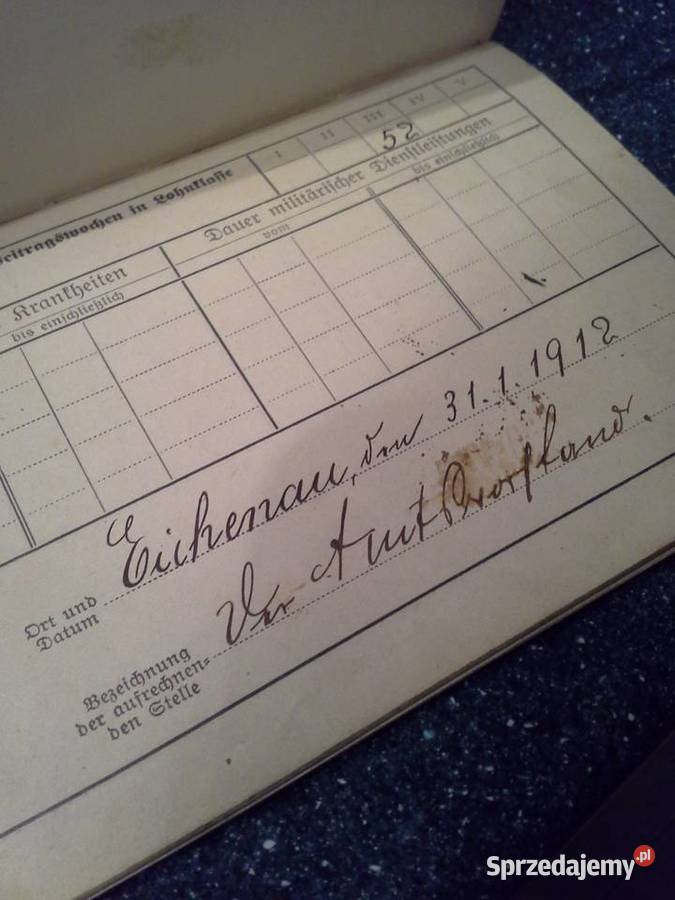 Beitragswochen in Lohnklasse
I II III IV V
52
Krankheiten
bis einschließlich
Dauer militärischer Dienstleistungen
vom
bis einschließlich
Ort und Datum
Eichenau, den 31.1.1912
Bezeichnung
der aufrechnen-
den Stelle
Der Amtsvorstand.
Sprzedajemy.pl